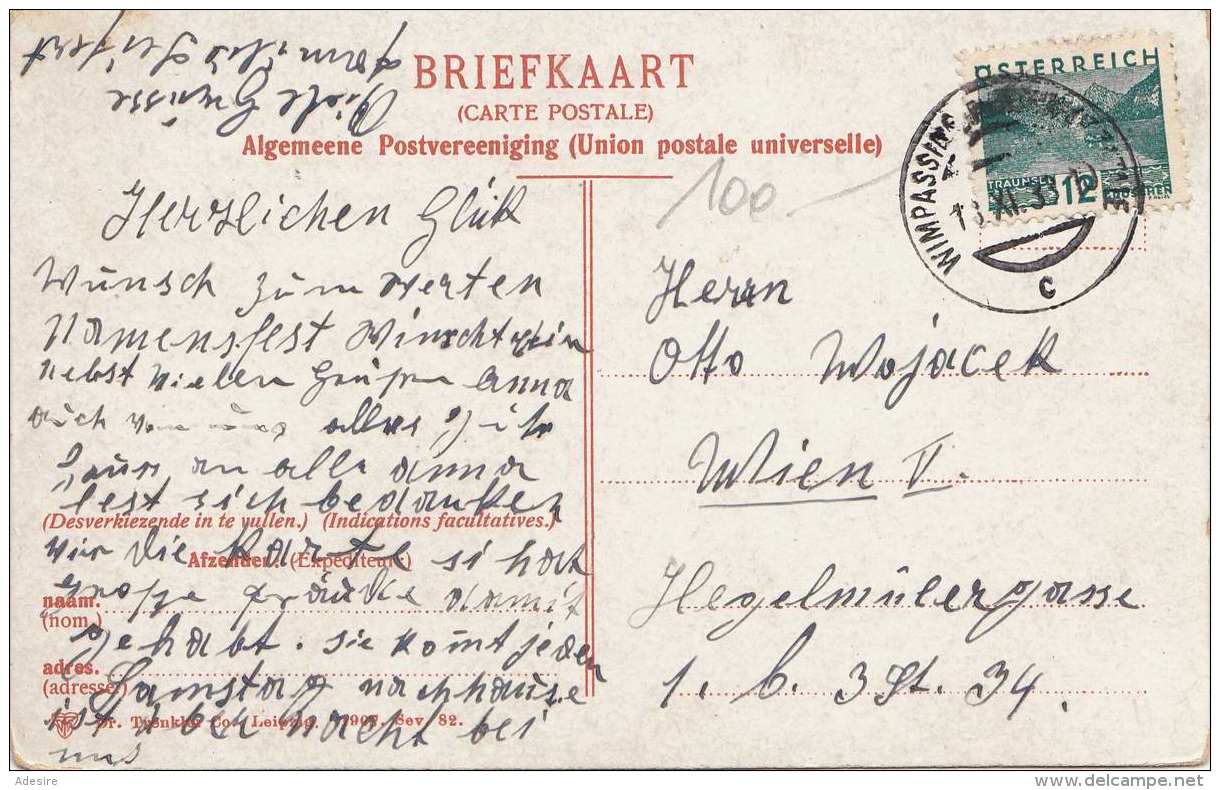 BRIEFKAART
(CARTE POSTALE)
Algemeene Postvereeniging (Union postale universelle)
ÖSTERREICH
TRAUNSEE
12
GROSCHEN
WIMPASSING
XI. 33
c
100
Herzlichen Glük
Wunsch zum werten
Namensfest Winscht
nebst vielen Grüßen Anna
auch von uns alles Gute
an alle Anna
lest sich bedanken
vir die Karte si hat
große Fräude damit
gehabt. Sie komt jeden
Samstag nachhause
ist über nacht bei
uns
Viele Grüsse
(Desverkiezende in te vullen.) (Indications facultatives.)
Afzender: (Expéditeur:)
naam.
(nom.)
adres.
(adresse.)
Dr. Trenkler Co., Leipzig. 1907. Sev. 82.
Herrn
Otto Wojacek
Wien V.
Hegelmülergasse
1. b. 3 St. 34.
Adesire
www.delcampe.net